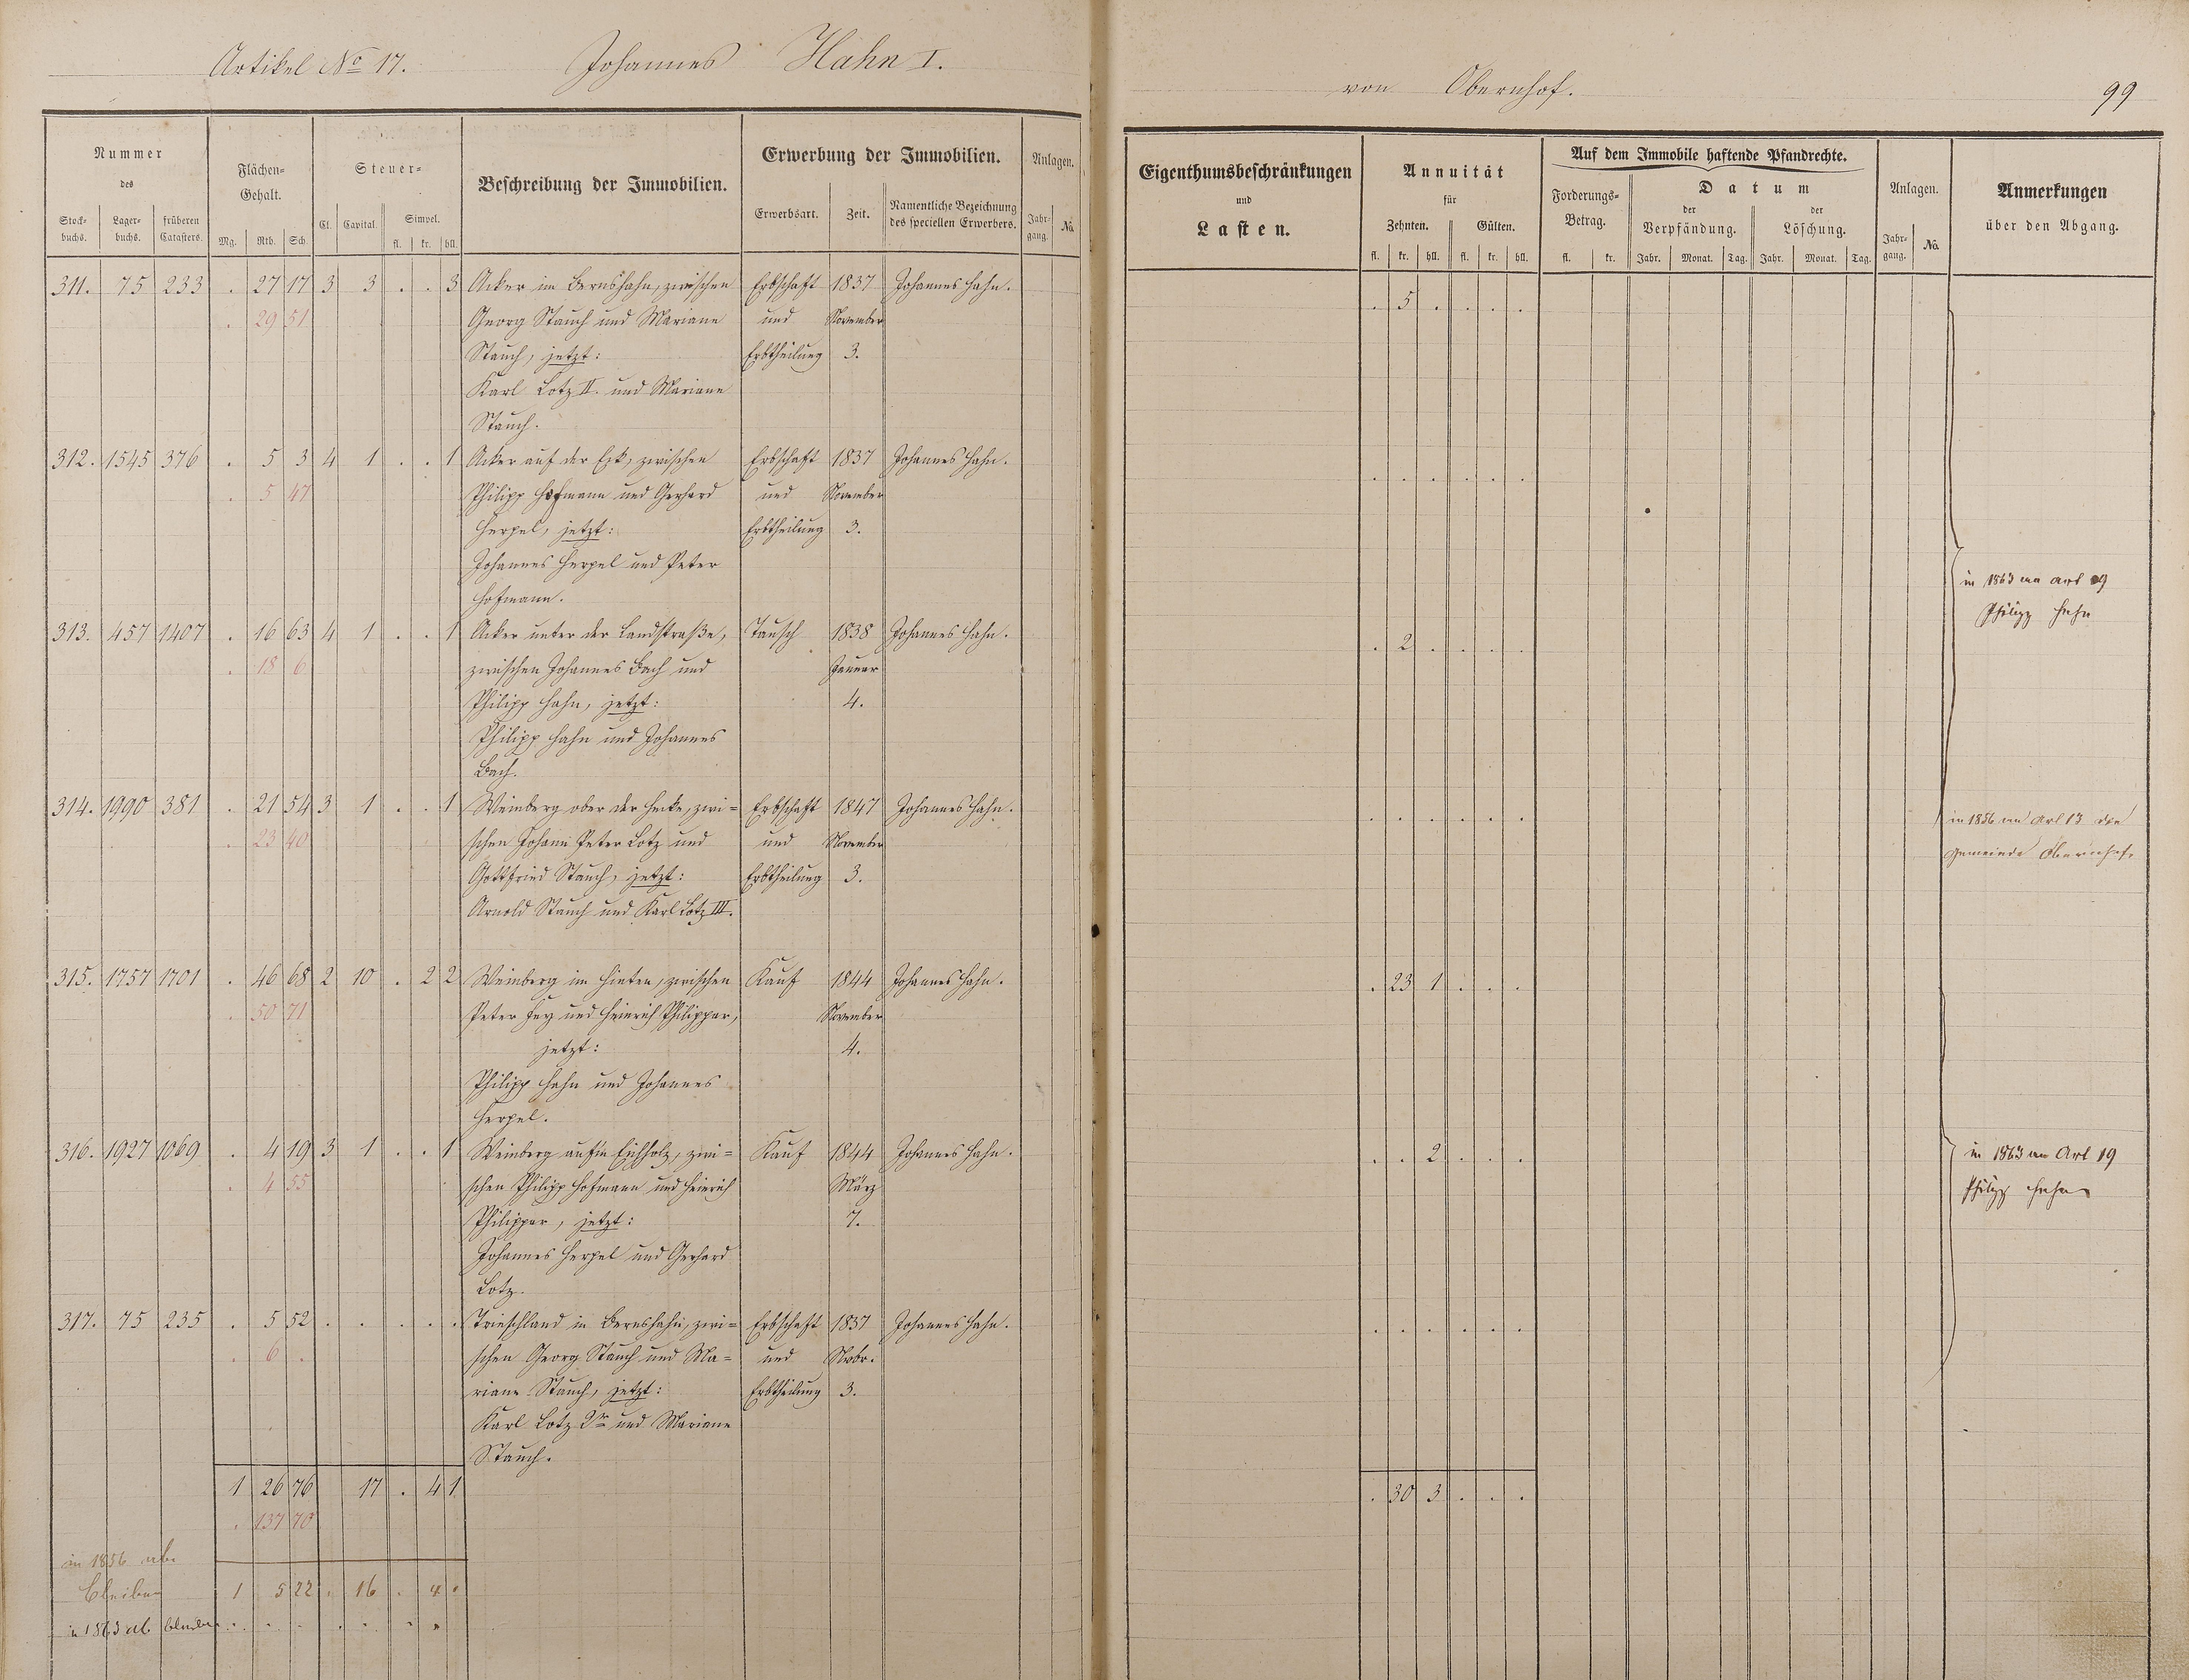 Artikel No 17. Johannes Hahn I.
von Obernhof. 99
Nummer
des
Stock-
buchs.
Lager-
buchs.
früheren
Catasters.
Flächen-
Gehalt.
Mg. Rth. Sch.
Steuer-
Cl. Capital. Simpel.
fl. kr. hll.
Beschreibung der Immobilien.
Erwerbung der Immobilien.
Erwerbsart. Zeit. Namentliche Bezeichnung
des speciellen Erwerbers.
Anlagen.
Jahr-
gang. No.
Eigenthumsbeschränkungen
und
Lasten.
Annuität
für
Zehnten. Gülten.
fl. kr. hll. fl. kr. hll.
Auf dem Immobile haftende Pfandrechte.
Forderungs-
Betrag.
fl. kr.
Datum
der
Verpfändung.
der
Löschung.
Jahr. Monat. Tag. Jahr. Monat. Tag.
Anlagen.
Jahr-
gang. No.
Anmerkungen
über den Abgang.
311. 75 233 . 27 17 3 3 . . 3 Acker im Bernshahn, zwischen Erbschaft 1837 Johannes Hahn. . 5 . . . .
. 29 51 Georg Stauch und Mariane und November
Stauch, jetzt: Erbtheilung 3.
Karl Lotz II. und Mariane
Stauch.
312. 1545 376 . 5 3 4 1 . . 1 Acker auf der Eck, zwischen Erbschaft 1837 Johannes Hahn. . . . . . .
. 5 47 Philipp Hofmann und Gerhard und November
Herpel, jetzt: Erbtheilung 3.
Johannes Herpel und Peter in 1863 an Art 19
Hofmann. Philipp Hahn
313. 457 1407 . 16 63 4 1 . . 1 Acker unter der Landstraße, Tausch 1838 Johannes Hahn. . 2 . . . .
. 18 6 zwischen Johannes Bach und Januar
Philipp Hahn, jetzt: 4.
Philipp Hahn und Johannes
Bach.
314. 1990 381 . 21 54 3 1 . . 1 Weinberg ober der Hecke, zwi- Erbschaft 1847 Johannes Hahn. . . . . . . in 1856 an Art 13 die
. 23 40 schen Johann Peter Lotz und und November Gemeinde Obernhof.
Gottfried Stauch, jetzt: Erbtheilung 3.
Arnold Stauch und Karl Lotz III.
315. 1757 1701 . 46 68 2 10 . 2 2 Weinberg im Hinten, zwischen Kauf 1844 Johannes Hahn. . 23 1 . . .
. 50 71 Peter Fey und Heinrich Philippar, November
jetzt: 4.
Philipp Hahn und Johannes
Herpel.
316. 1927 1069 . 4 19 3 1 . . 1 Weinberg auf'm Eichholz, zwi- Kauf 1844 Johannes Hahn. . . 2 . . . in 1863 an Art 19
. 4 55 schen Philipp Hofmann und Heinrich März Philipp Hahn
Philippar, jetzt: 7.
Johannes Herpel und Gerhard
Lotz.
317. 75 235 . 5 52 . . . . . Trieschland in Bernshahn, zwi- Erbschaft 1837 Johannes Hahn. . . . . . .
. 6 . schen Georg Stauch und Ma- und Novbr.
riane Stauch, jetzt: Erbtheilung 3.
Karl Lotz 2r und Mariane
Stauch.
1 26 76 17 . 4 1 . 30 3 . . .
. 137 70
in 1856 ab.
bleiben 1 5 22 . 16 . 4 .
in 1863 ab bleiben . . . . . . . .